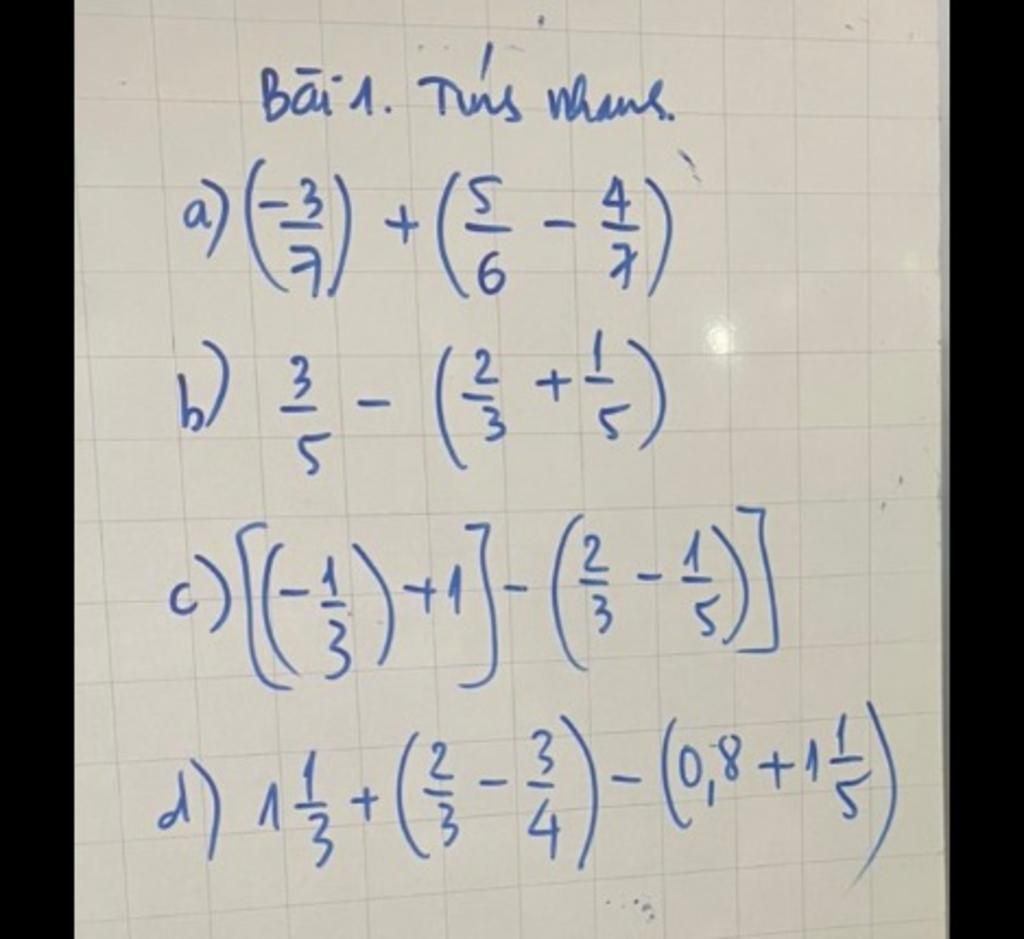 Bài 1. Tính nhanh.
a) (-3/7) + (5/6 - 4/7)
b) 3/5 - (2/3 + 1/5)
c) [(-1/3) + 1] - (2/3 - 1/5)]
d) 1 1/3 + (2/3 - 3/4) - (0,8 + 1 1/5)